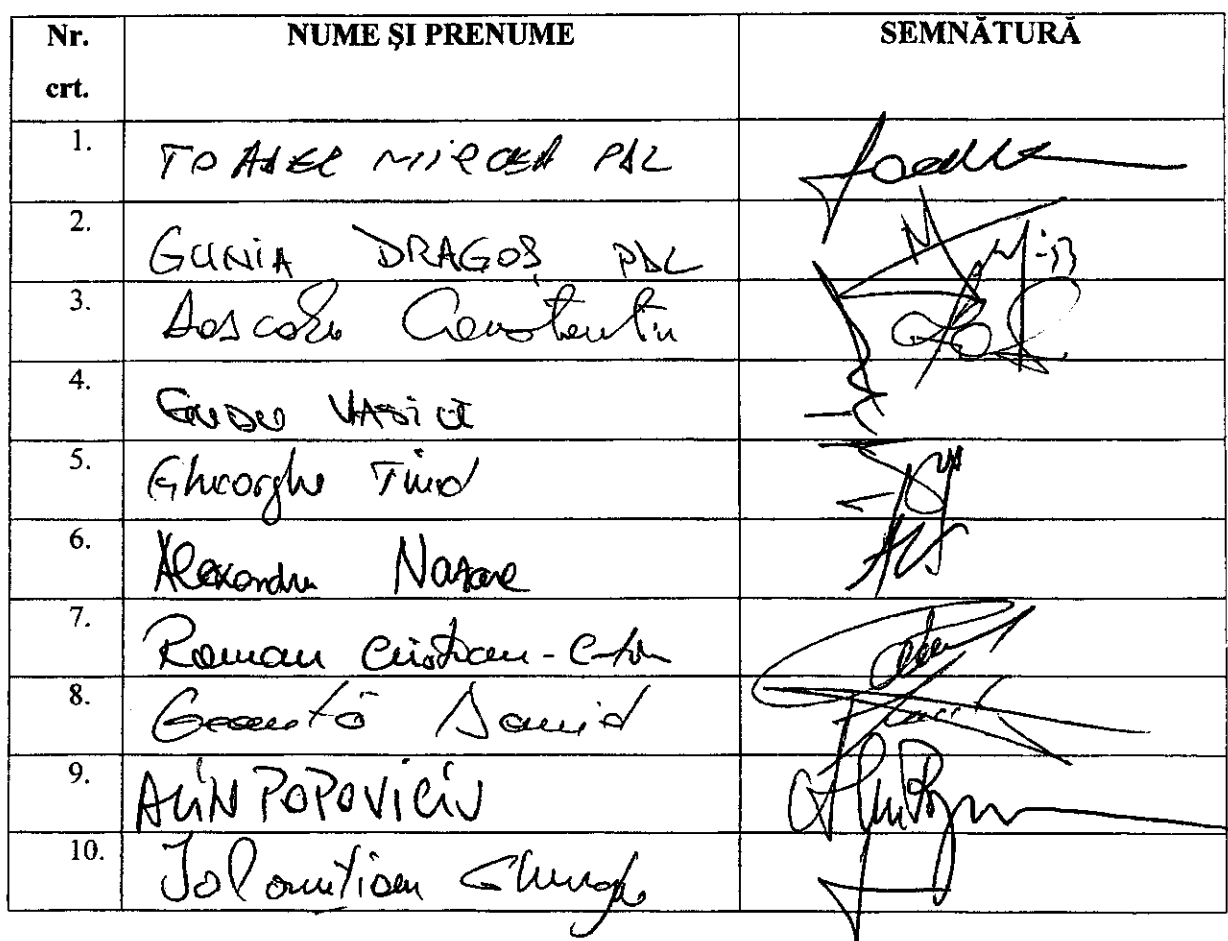 Nr. crt. NUME ȘI PRENUME SEMNĂTURĂ
1. TOADER MIRCEA PDL
2. GUNIA DRAGOȘ PDL
3. Dascălu Constantin
4. GUDU VASILE
5. Gheorghe Tinel
6. Alexandru Nazare
7. Roman Cristian-C-tin
8. Geantă Daniel
9. ALIN POPOVICIU
10. Ialomițianu Gheorghe